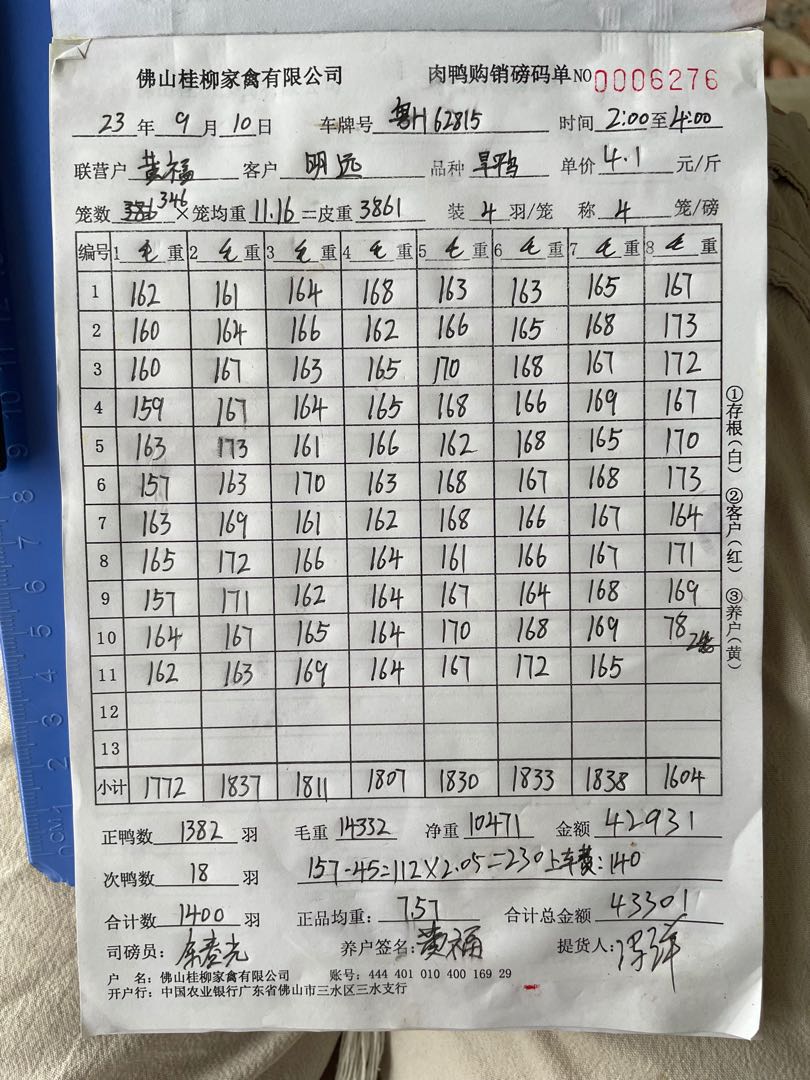 佛山桂柳家禽有限公司 肉鸭购销磅码单 NO 0006276
23 年 9 月 10 日 车牌号 粤H62815 时间 2:00 至 4:00
联营户 黄福 客户 明远 品种 旱鸭 单价 4.1 元/斤
笼数 346 × 笼均重 11.16 = 皮重 3861 装 4 羽/笼 称 4 笼/磅
编号 1 毛 重 2 毛 重 3 毛 重 4 毛 重 5 毛 重 6 毛 重 7 毛 重 8 毛 重
1 162 161 164 168 163 163 165 167
2 160 164 166 162 166 165 168 173
3 160 167 163 165 170 168 167 172
4 159 167 164 165 168 166 169 167
5 163 173 161 166 162 168 165 170
6 157 163 170 163 168 167 168 173
7 163 169 161 162 168 166 167 164
8 165 172 166 164 161 166 167 171
9 157 171 162 164 167 164 168 169
10 164 167 165 164 170 168 169 78
11 162 163 169 164 167 172 165
12
13
小计 1772 1837 1811 1807 1830 1833 1838 1604
正鸭数 1382 羽 毛重 14332 净重 10471 金额 42931
次鸭数 18 羽 157-45=112×2.05=230 上车费:140
合计数 1400 羽 正品均重: 7.57 合计总金额 43301
司磅员: 养户签名: 黄福 提货人:
户 名: 佛山桂柳家禽有限公司 账号: 444 401 010 400 169 29
开户行: 中国农业银行广东省佛山市三水区三水支行
①存根(白) ②客户(红) ③养户(黄)